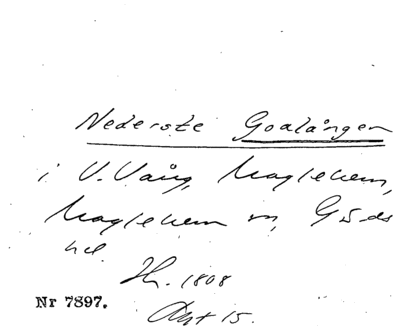 Nederste Goalången
i V. Vång, Maglehem,
Maglehem sn, Gärds
hd.
Zh. 1808
Nr 7897.
Akt 15.